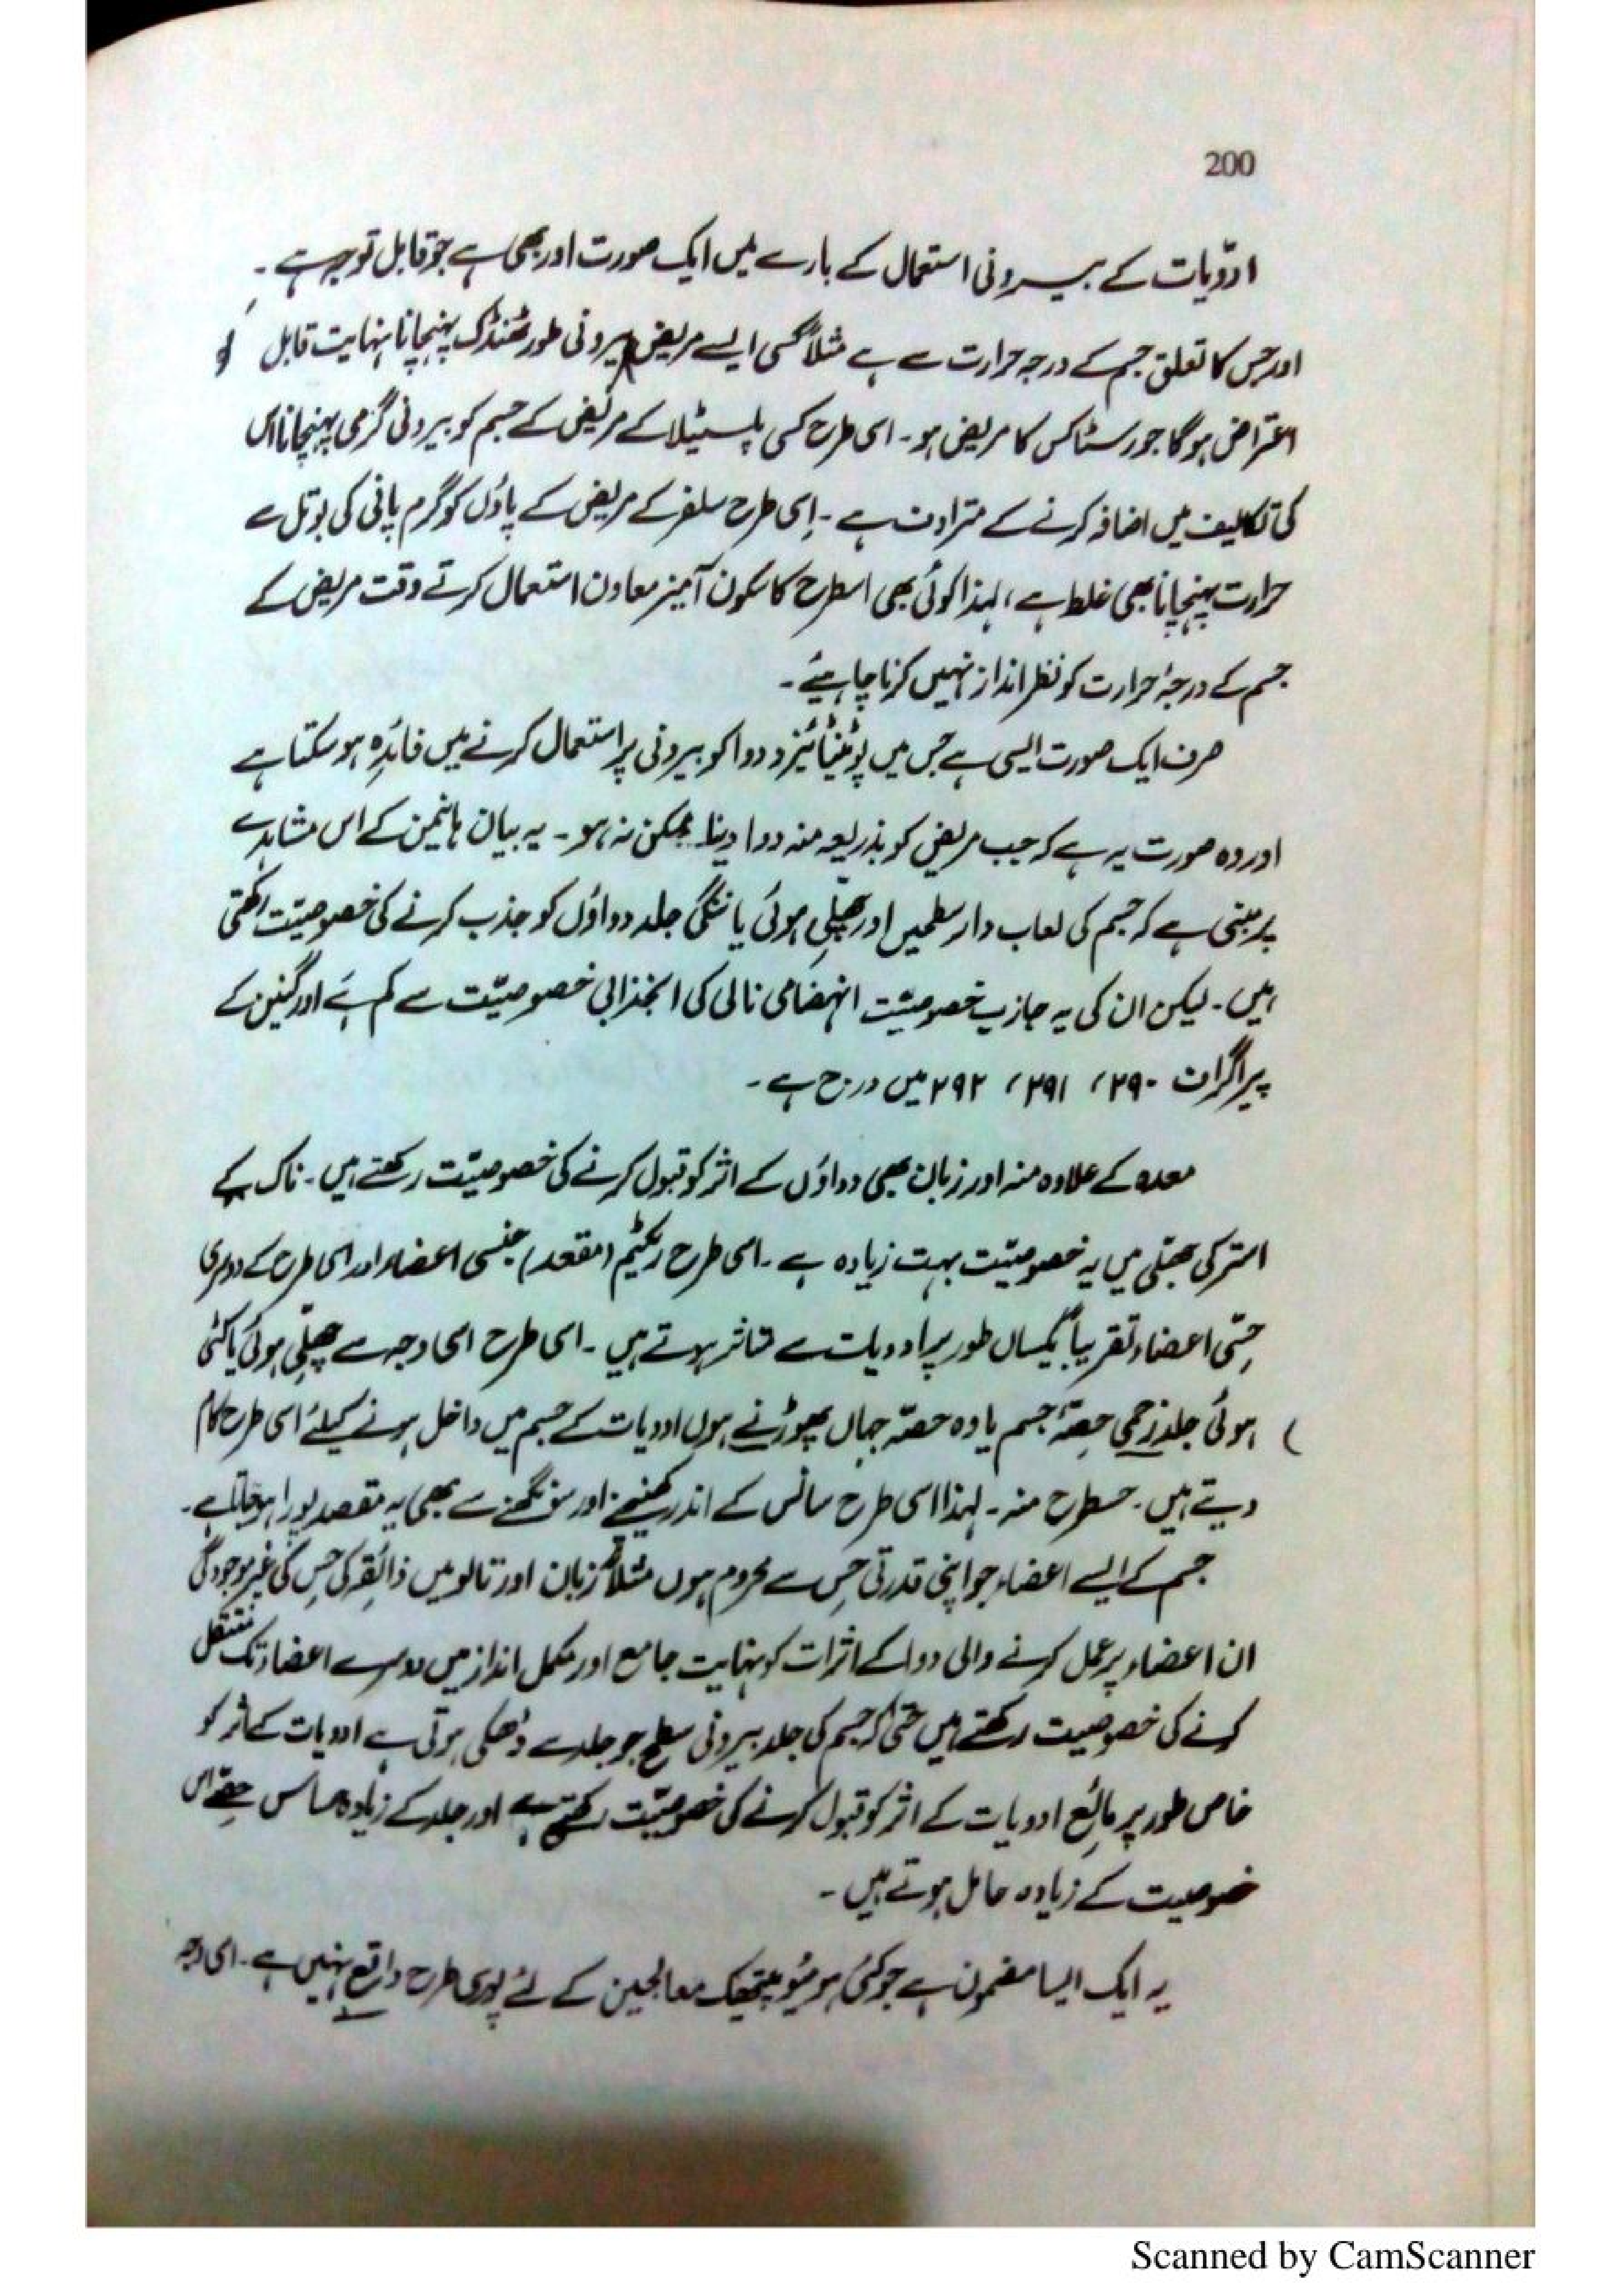 200
ادویات کے بیرونی استعمال کے بارے میں ایک صورت اور بھی ہے جو قابل توجہ ہے ۔
اور جس کا تعلق جسم کے درجہ حرارت سے ہے مثلاً کسی ایسے مریض بیرونی طور ٹھنڈک پہنچانا نہایت قابل
اعتراض ہوگا جو رسٹاکس کا مریض ہو ۔ اسی طرح کسی پلسٹیلا کے مریض کے جسم کو بیرونی گرمی پہنچانا اس
کی تکالیف میں اضافہ کرنے کے مترادف ہے ۔ اِسی طرح سلفر کے مریض کے پاؤں کو گرم پانی کی بوتل سے
حرارت پہنچانا بھی غلط ہے ، لہذا کوئی بھی اسطرح کا سکون آمیز معاون استعمال کرتے وقت مریض کے
جسم کے درجۂ حرارت کو نظر انداز نہیں کرنا چاہیئے ۔
صرف ایک صورت ایسی ہے جس میں پوٹینٹائیزڈ دوا کو بیرونی پر استعمال کرنے میں فائدہ ہو سکتا ہے
اور وہ صورت یہ ہے کہ جب مریض کو بذریعہ منہ دوا دینا ممکن نہ ہو ۔ یہ بیان ہانیمن کے اس مشاہدے
پر مبنی ہے کہ جسم کی لعاب دار سطحیں اور چھلی ہوئی یا ننگی جلد دواؤں کو جذب کرنے کی خصوصیّت رکھتی
ہیں ۔ لیکن ان کی یہ جازب خصوصیّت انہضامی نالی کی انجذابی خصوصیّت سے کم ہے اور گنین کے
پیراگراف ۲۹۰، ۲۹۱، ۲۹۲ میں درج ہے ۔
معدہ کے علاوہ منہ اور زبان بھی دواؤں کے اثر کو قبول کرنے کی خصوصیّت رکھتے ہیں ۔ ناک کے
استر کی جھلی میں یہ خصوصیّت بہت زیادہ ہے ۔ اسی طرح ریکٹیم (مقعد) جنسی اعضاء اور اسی طرح کے دوسری
حِسّی اعضاء تقریباً یکساں طور پر ادویات سے متاثر ہوتے ہیں ۔ اسی طرح اسی وجہ سے چھلِی ہوئی یا کٹی
ہوئی جلد زخمی حِصّہ جسم یا وہ حصّہ جہاں پھوڑنے ہوں ادویات کے جسم میں داخل ہونے کیلئے اسی طرح کام
دیتے ہیں ۔ جسطرح منہ ۔ لہذا اسی طرح سانس کے اندر کھینچنے اور سونگھنے سے بھی یہ مقصد پورا ہو جاتا ہے ۔
جسم کے ایسے اعضاء جو اپنی قدرتی حِس سے محروم ہوں مثلاً زبان اور تالو میں ذائقہ کی حِس کی غیر موجودگی
ان اعضاء پر عمل کرنے والی دوا کے اثرات کو نہایت جامع اور مکمل انداز میں دوسرے اعضاء تک منتقل
کرنے کی خصوصیت رکھتے ہیں حتیٰ کہ جسم کی جلد بیرونی سطح جو جلد سے ڈھکی ہوتی ہے ادویات کے اثر کو
خاص طور پر مائع ادویات کے اثر کو قبول کرنے کی خصوصیّت رکھتی ہے اور جلد کے زیادہ حساس حِصّے اس
خصوصیت کے زیادہ حامل ہوتے ہیں ۔
یہ ایک ایسا مضمون ہے جو کئی ہومیوپیتھک معالجین کے لئے پوری طرح واقع نہیں ہے ۔ اسی وجہ
Scanned by CamScanner